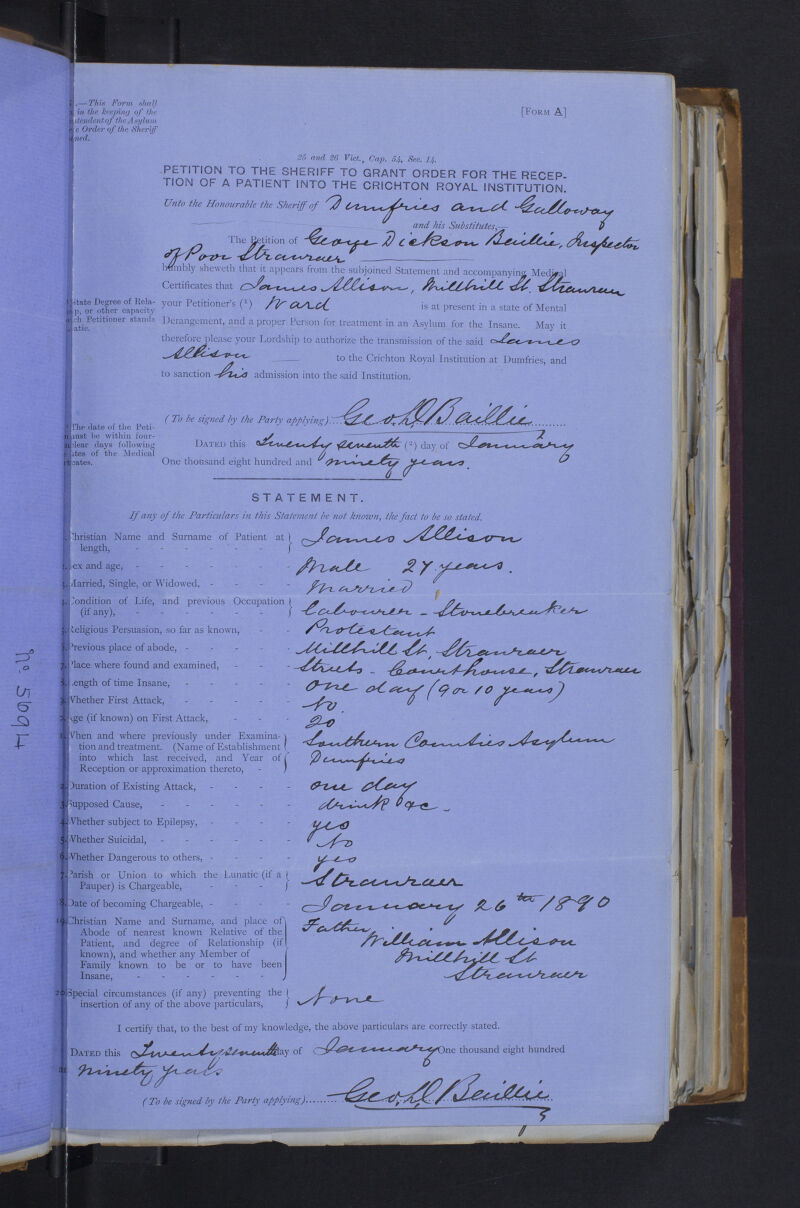 .—This Form shall
in the keeping of the
of the Asylum
Order of the Sheriff
[FORM A]
25 and 26 Vict., Cap. 54, Sec. 14.
PETITION TO THE SHERIFF TO GRANT ORDER FOR THE RECEP-
TION OF A PATIENT INTO THE CRICHTON ROYAL INSTITUTION.
Unto the Honourable the Sheriff of Dumfries and Galloway
and his Substitutes,—
The Petition of George Dickson Baillie, Inspector
of Poor Stranraer
humbly sheweth that it appears from the subjoined Statement and accompanying Medical
Certificates that James Allison, Millhill St, Stranraer
State Degree of Rela-
p, or other capacity
ch Petitioner stands
atic.
your Petitioner's (¹) Ward is at present in a state of Mental
Derangement, and a proper Person for treatment in an Asylum for the Insane. May it
therefore please your Lordship to authorize the transmission of the said James
Allison to the Crichton Royal Institution at Dumfries, and
to sanction his admission into the said Institution.
(To be signed by the Party applying) Geo. D. Baillie
The date of the Peti-
must be within four-
clear days following
of the Medical
DATED this Twenty seventh (²) day of January
One thousand eight hundred and ninety years.
STATEMENT.
If any of the Particulars in this Statement be not known, the fact to be so stated.
Christian Name and Surname of Patient at
length, James Allison
Sex and age, Male 27 years.
Married, Single, or Widowed, Married
Condition of Life, and previous Occupation
(if any), Labourer - Stonebreaker
Religious Persuasion, so far as known, Protestant
Previous place of abode, Millhill St, Stranraer
7. Place where found and examined, Streets - Courthouse, Stranraer
Length of time Insane, One day (9 or 10 years)
Whether First Attack, No.
Age (if known) on First Attack, 20
When and where previously under Examina-
tion and treatment. (Name of Establishment
into which last received, and Year of
Reception or approximation thereto, Southern Counties Asylum
Dumfries
Duration of Existing Attack, one day
Supposed Cause, drink &c -
Whether subject to Epilepsy, yes
Whether Suicidal, No
6. Whether Dangerous to others, yes
7. Parish or Union to which the Lunatic (if a
Pauper) is Chargeable, Stranraer
8. Date of becoming Chargeable, January 26th 1890
19. Christian Name and Surname, and place of
Abode of nearest known Relative of the
Patient, and degree of Relationship (if
known), and whether any Member of
Family known to be or to have been
Insane, Father
William Allison
Millhill St
Stranraer
20. Special circumstances (if any) preventing the
insertion of any of the above particulars, None
I certify that, to the best of my knowledge, the above particulars are correctly stated.
DATED this Twenty seventh day of January One thousand eight hundred
ninety years
(To be signed by the Party applying) Geo. D. Baillie
No 5694